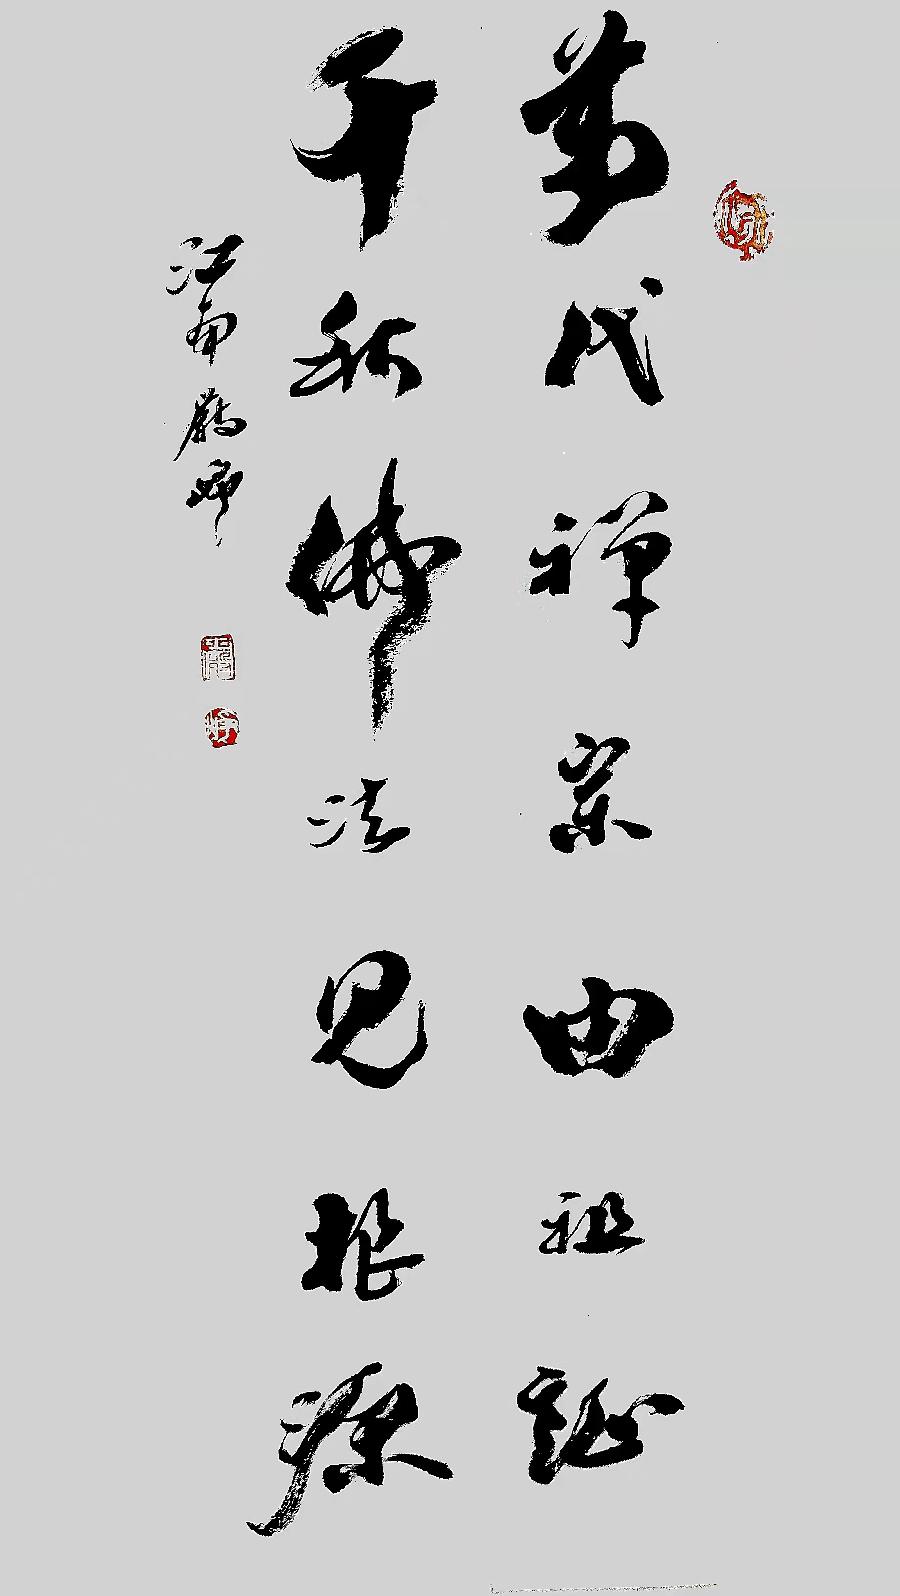 萬代禪宗由祖證
千秋佛法見根源
江南嚴